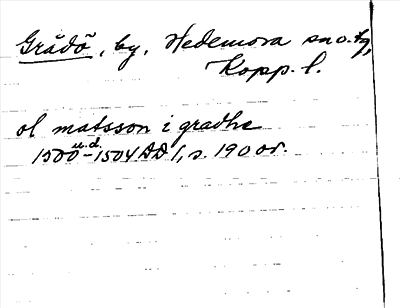 Grådö, by, Hedemora sn o. tg,
Kopp. l.
ol matsson i gradhe
1500 u.d. – 1504 DD 1, s. 190 or.